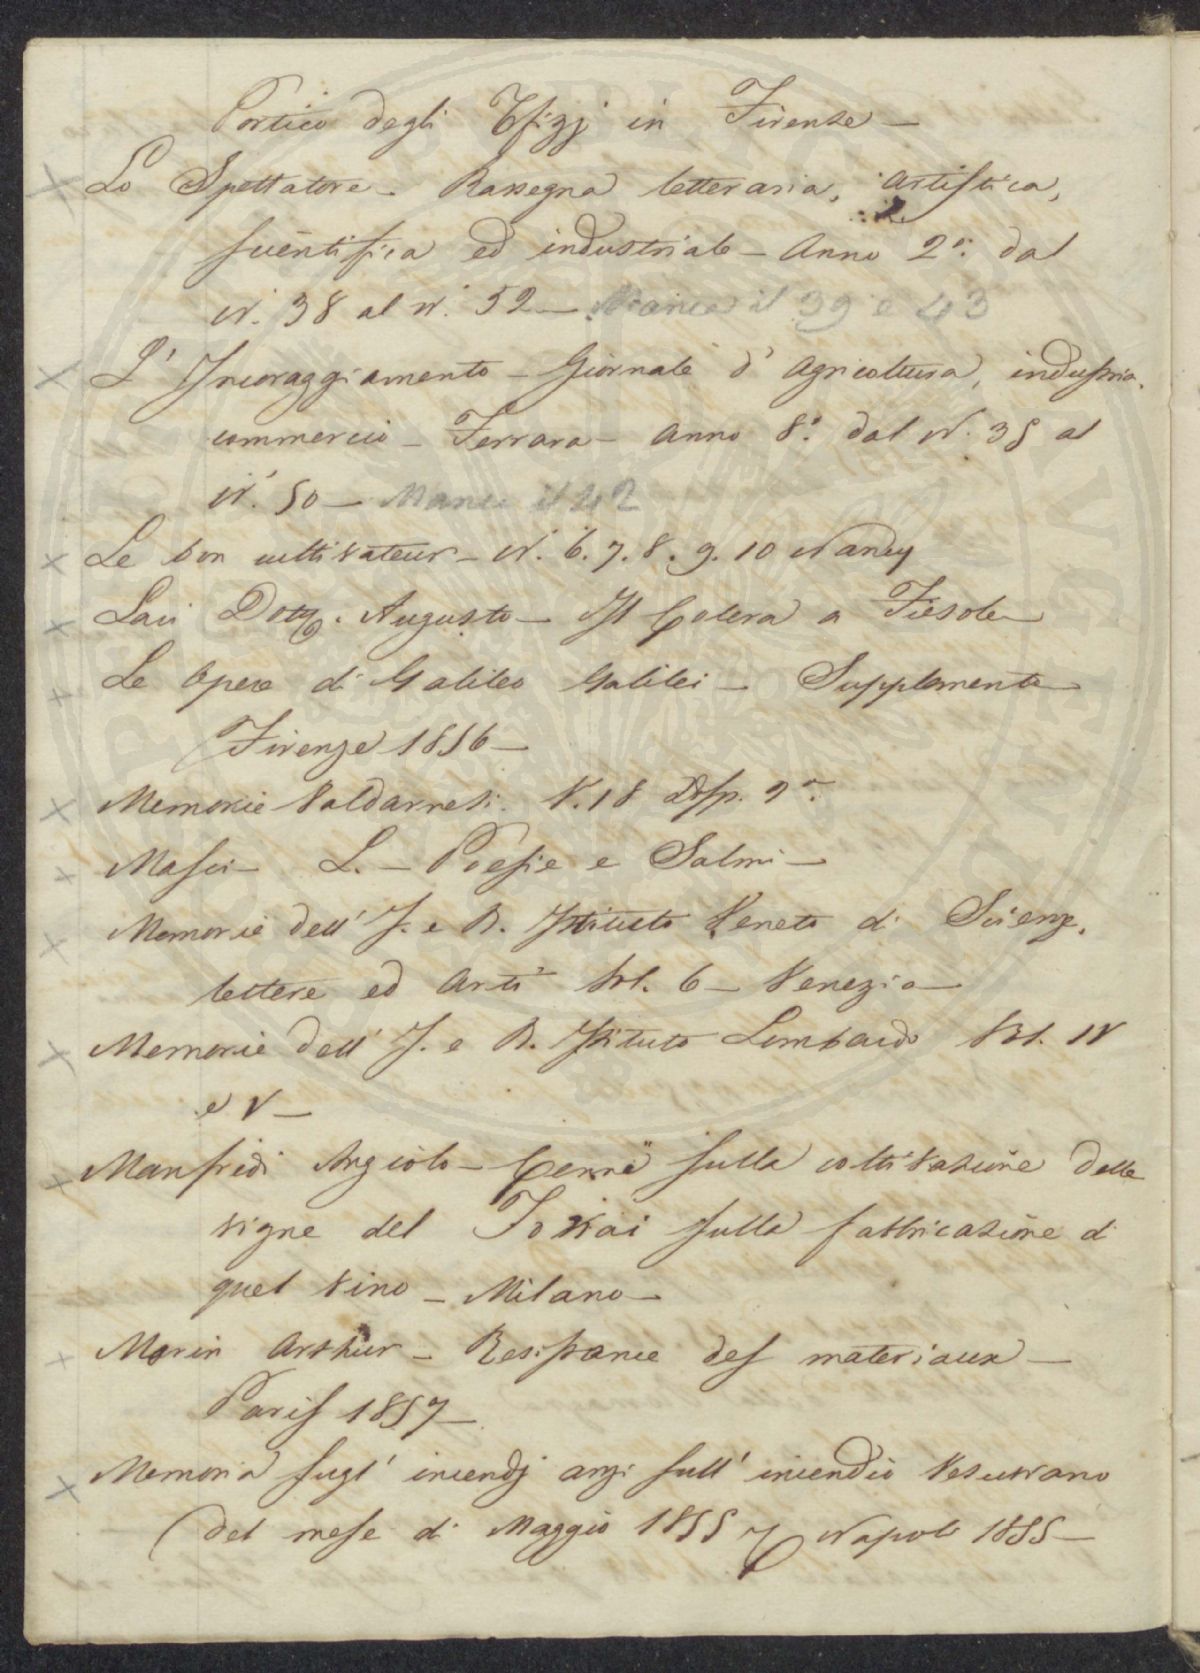 Portico degli Uffizj in Firenze —
Lo Spettatore — Rassegna letteraria, artistica,
scientifica ed industriale — Anno 2º: dal
N.º 38 al N.º 52 — Manca il 39 e 43
L'Incoraggiamento — Giornale d'Agricoltura, industria,
commercio — Ferrara — Anno 8º: dal N. 38 al
N.º 50 — Manca il 42
Le bon cultivateur — N.º 6. 7. 8. 9. 10 Nancy
Laci Dott. Augusto — Il Colera a Fiesole —
Le Opere di Galileo Galilei — Supplemento
Firenze 1856 —
Memorie Valdarnesi. V. 18 Disp. 9ª:
Masci — L. — Poesie e Salmi —
Memorie dell'I. e R. Istituto Veneto di Scienze,
lettere ed Arti Vol. 6 — Venezia —
Memorie dell'I. e R. Istituto Lombardo Vol. IV
e V —
Manfredi Angiolo — Cenni sulla coltivazione delle
vigne del Tokai sulla fabbricazione di
quel vino — Milano —
Morin Arthur — Resistance des materiaux —
Paris 1857 —
Memoria sugl'incendj anzi sull'incendio Vesuviano
del mese di Maggio 1855 Napoli 1855 —